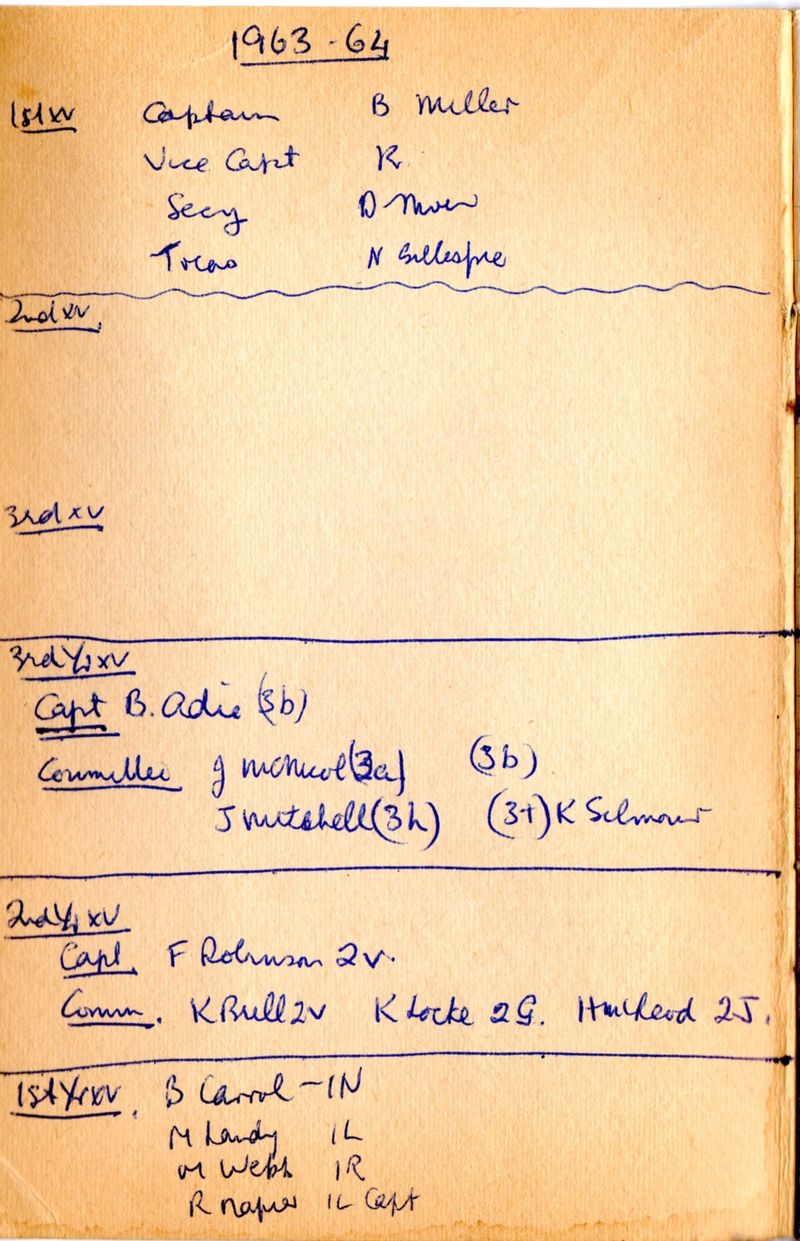 1963-64
1st XV Captain B Miller
Vice Capt K
Secy D
Treas N Gillespie
2nd XV.
3rd XV
3rd Yr XV
Capt B. Adie (3b)
Committee J McNicol (3a) (3b)
J Mitchell (3h) (3t) K Gilmour
2nd Yr XV
Capt. F Robinson 2v.
Comm. K Bull 2v K Locke 2G. H McLeod 2J.
1st Yr XV. B Carrol - 1N
M Landy 1L
M Webb 1R
R Napier 1L Capt